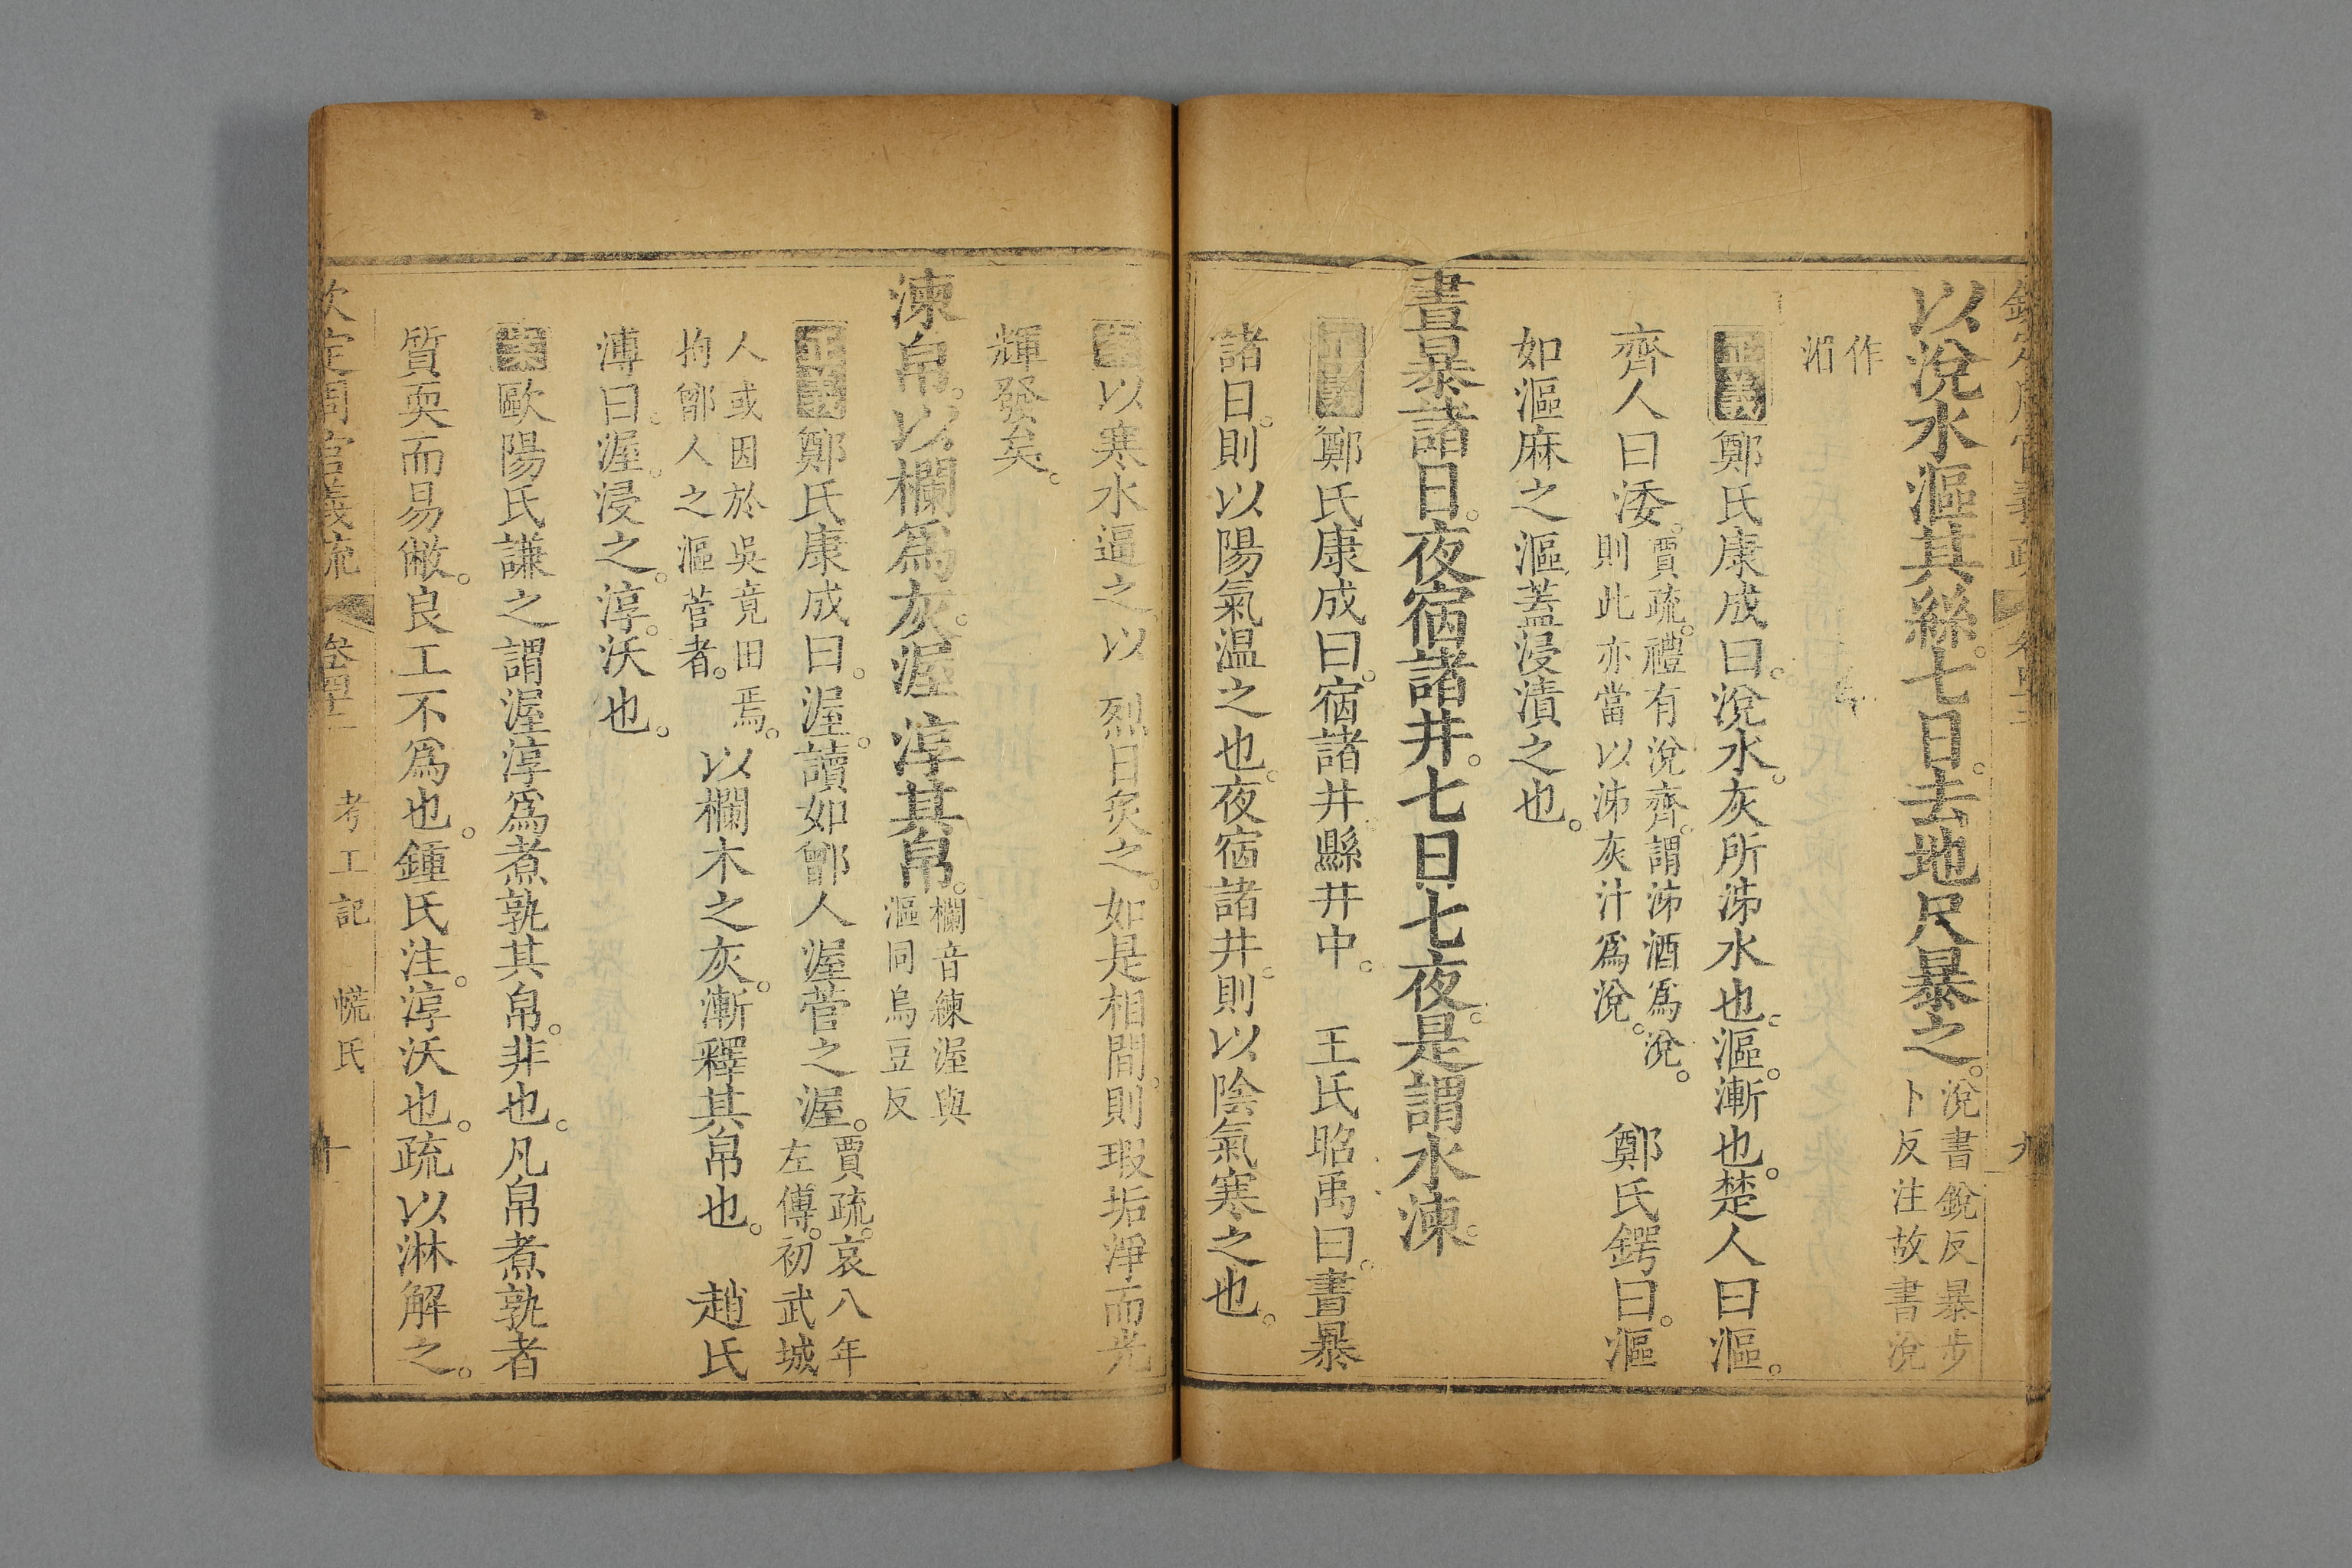 以涗水漚其絲。七日。去地尺暴之。涗書銳反暴步
卜反注故書涗
作
湄
正義鄭氏康成曰。涗水。灰所泲水也。漚。漸也。楚人曰漚。
齊人曰涹。賈疏。禮有涗齊。謂泲酒爲涗。
則此亦當以泲灰汁爲涗。鄭氏鍔曰。漚
如漚麻之漚。蓋浸漬之也。
晝暴諸日。夜宿諸井。七日七夜。是謂水湅。
正義鄭氏康成曰。宿諸井。縣井中。王氏昭禹曰。晝暴
諸日。則以陽氣温之也。夜宿諸井。則以陰氣寒之也。
案以寒水逼之。以烈日炙之。如是相間。則瑕垢淨而光
輝發矣。
湅帛。以欄爲灰。渥淳其帛。欄音練渥與
漚同烏豆反
正義鄭氏康成曰。渥。讀如鄫人渥菅之渥。賈疏。哀八年
左傳。初武城
人或因於吳竟田焉。
拘鄫人之漚菅者。以欄木之灰。漸釋其帛也。趙氏
溥曰。渥。浸之。淳。沃也。
案歐陽氏謙之謂渥淳爲煮孰其帛。非也。凡帛煮孰者
質耎而易敝。良工不爲也。鍾氏注。淳。沃也。疏以淋解之。
欽定周官義疏 卷四十三 考工記 㡛氏 十